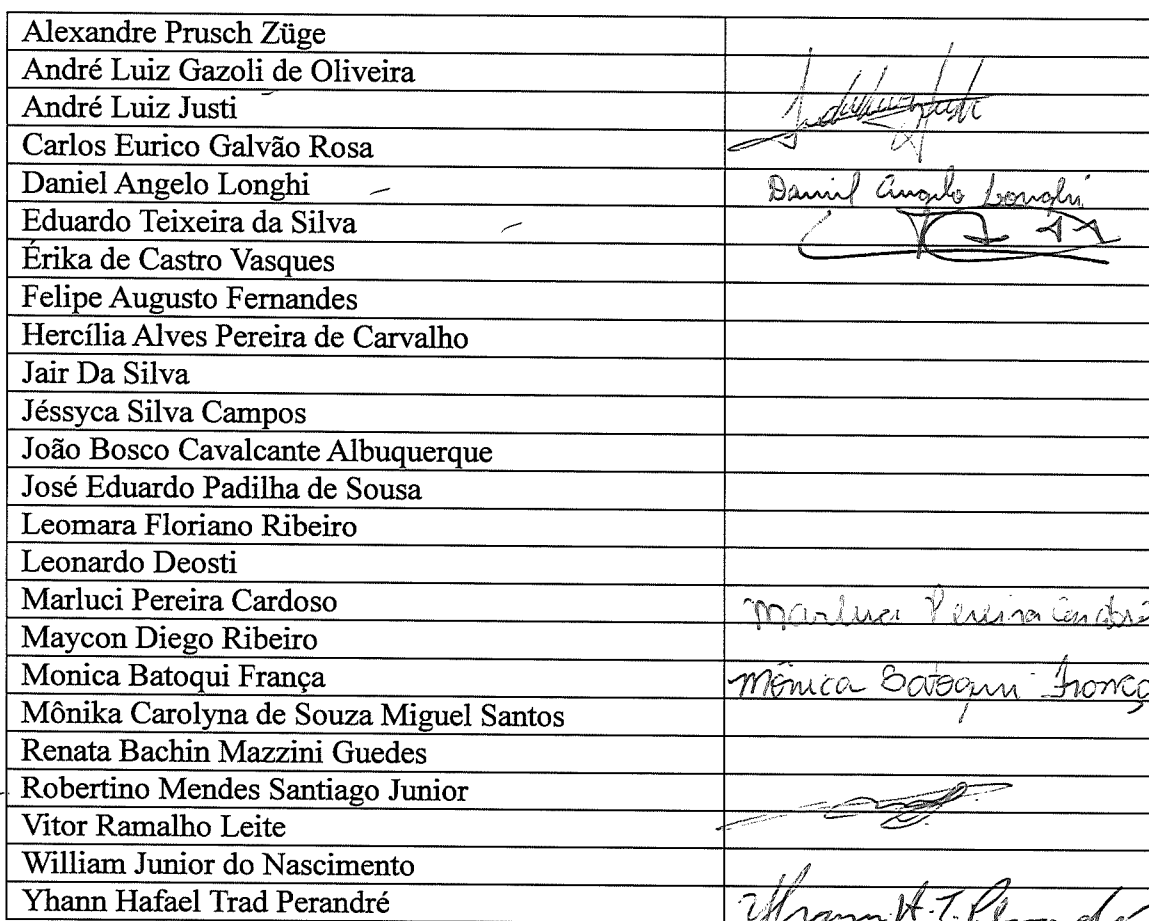 Alexandre Prusch Züge
André Luiz Gazoli de Oliveira
André Luiz Justi
Carlos Eurico Galvão Rosa
Daniel Angelo Longhi Daniel Angelo Longhi
Eduardo Teixeira da Silva
Érika de Castro Vasques
Felipe Augusto Fernandes
Hercília Alves Pereira de Carvalho
Jair Da Silva
Jéssyca Silva Campos
João Bosco Cavalcante Albuquerque
José Eduardo Padilha de Sousa
Leomara Floriano Ribeiro
Leonardo Deosti
Marluci Pereira Cardoso Marluci Pereira
Maycon Diego Ribeiro
Monica Batoqui França Mônica Batoqui França
Mônika Carolyna de Souza Miguel Santos
Renata Bachin Mazzini Guedes
Robertino Mendes Santiago Junior
Vitor Ramalho Leite
William Junior do Nascimento
Yhann Hafael Trad Perandré Yhann H. T.